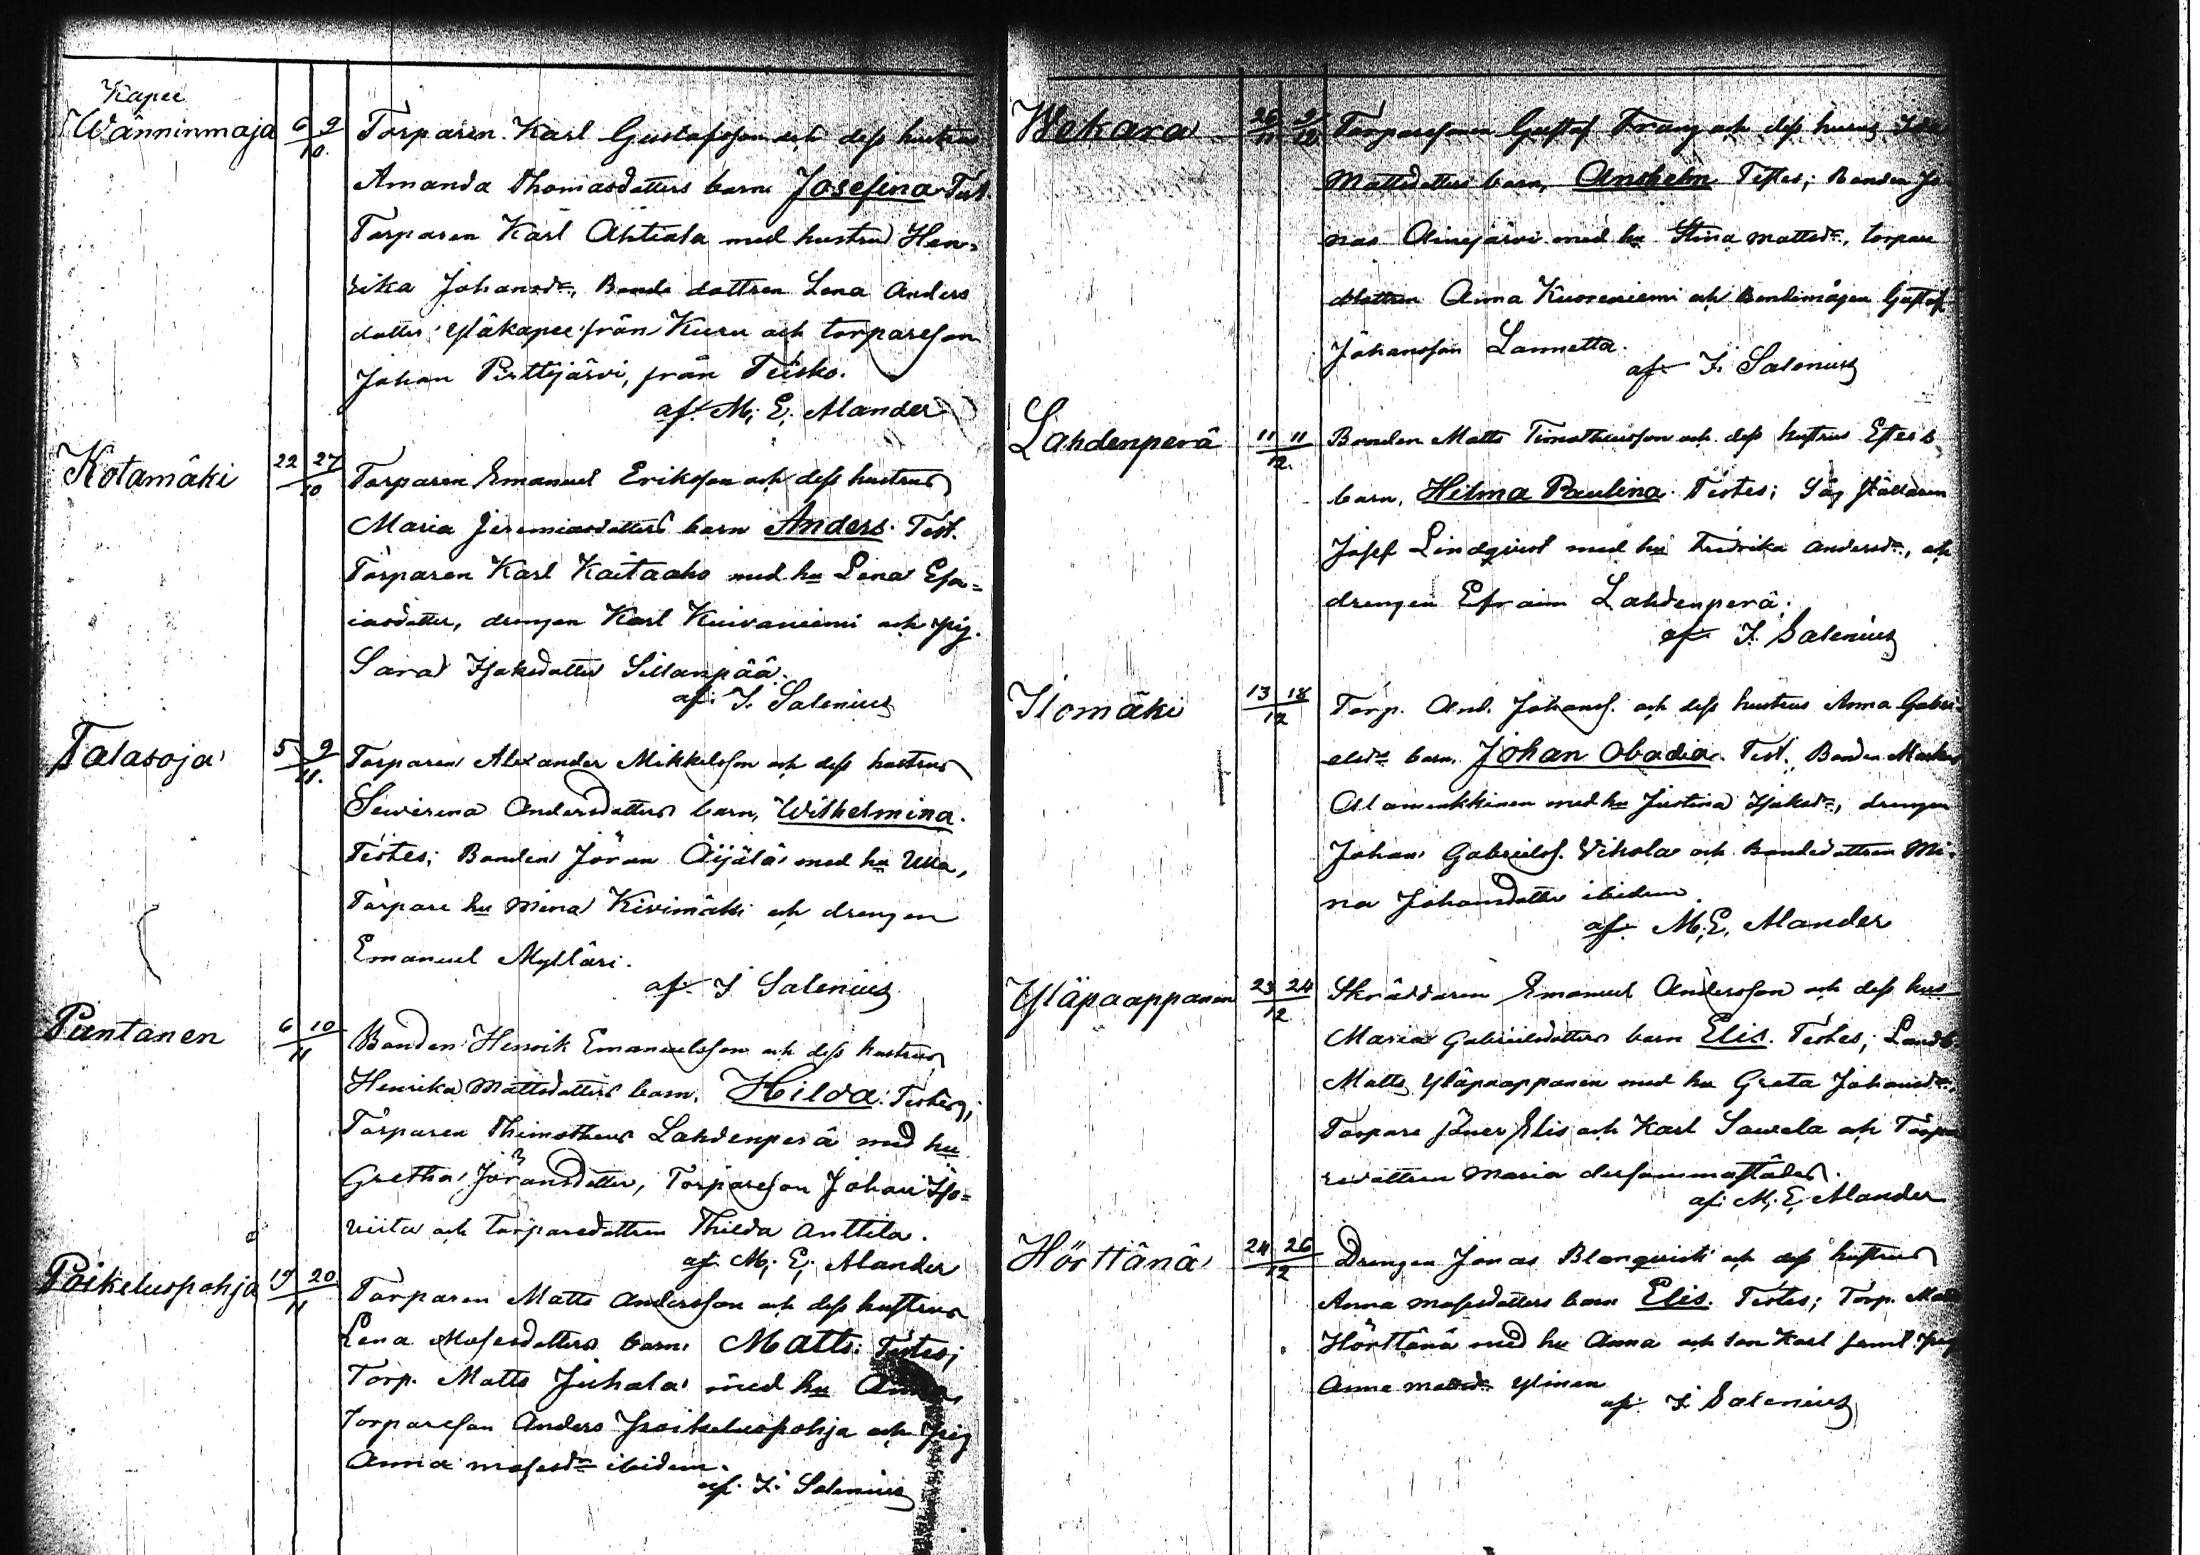 Kapee
Wänninmaja 6 9/10. Torparen Karl Gustafsson och dess hustrus
Amanda Thomasdotters barn Josefina Test.
Torparen Karl Ahtiala med hustru Hen=
rika Johansdr, Bonde dottren Lena Anders
dotter Yläkapee från Kuru och torpareson
Johan Pirttijärvi, från Teisko.
af. M. E. Alander
Kotamäki 22 27/10 Torparen Emanuel Eriksson och dess hustrus
Maria Jeremiasdotters barn Anders. Test.
Torparen Karl Kaitaaho med hu Lena Esa=
iasdotter, drengen Karl Kuivaniemi och pig.
Sara Isaksdotter Sillanpää.
af. I. Salenius
Talasoja 5 9/11. Torparen Alexander Mikkelsson och dess hustrus
Sewerina Andersdotters barn, Wilhelmina.
Testes; Bonden Jöran Äijälä med hu Ulla,
Torpare hu Mina Kivimäki och drengen
Emanuel Mylläri.
af I Salenius
Puntanen 6 10/11 Bonden Henrik Emanuelsson och dess hustrus
Henrika Mattsdotters barn, Hilda. Testes;
Torparen Thimotheus Lahdenperä med hu
Gretha Jöransdotter, Torpareson Johan Iso=
viita och torparedottren Thilda Anttila.
af M. E. Alander
Poikeluspohja 19 20/11 Torparen Matts Andersson och dess hustrus
Lena Mosesdotters barn Matts; Testes;
Torp. Matts Juhala med hu Anna,
Torpareson Anders Poikeluspohja och pig
Anna Mosesdr ibidem.
af. I. Salenius
Wekara 26/11 2/12 Torparesonen Gustaf Franz och dess hustrus Ida
Mattsdotters barn, Anshelm Testes; Bonden Jo
nas Olinejärvi med hu Stina Mattsdr, torpare
dottren Anna Kuoreniemi och Bondemågen Gustaf
Johansson Lannetta.
af I. Salenius
Lahdenperä 11 11/12. Bonden Matts Timotheusson och dess hustrus Esters
barn, Hilma Paulina. Testes; Såg ställaren
Josef Lindqvist med hu Fredrika Andersdr, och
drengen Efraim Lahdenperä.
af I. Salenius
Ilomäki 13 18/12 Torp. And. Johanss. och dess hustrus Anna Gabri=
elsdr barn, Johan Obadia. Test. Bonden Markus
Alamenkkinen med hu Justina Isaksdr, drengen
Johan Gabrielss. Vihola och Bondedottren Mi=
na Johansdotter ibidem.
af. M. E. Alander
Yläpaappanen 23 24/12 Skräddaren Emanuel Andersson och dess hus
Maria Gabrielsdotters barn Elis. Testes; Landb.
Matts Yläpaappanen med hu Greta Johansdr,
Torpare söner Elis och Karl Sawela och Torpa
redottren Maria dersammastädes.
af. M. E. Alander
Hörttänä 24 26/12 Drengen Jonas Blomqvist och dess hustrus
Anna Mosesdotters barn Elis. Testes; Torp. Matts
Hörttänä med hu Anna och son Karl samt pig
Anna Mattsdr Ylinen
af I. Salenius